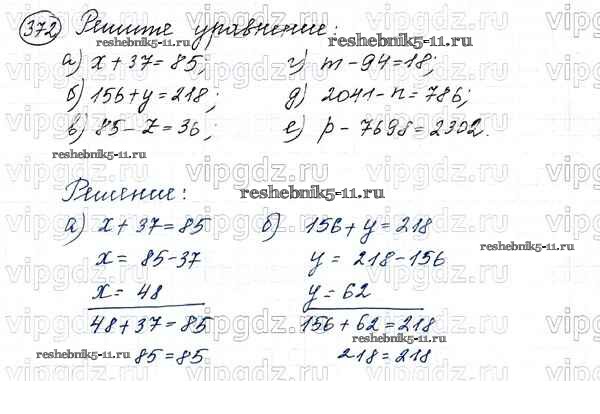 372 Решите уравнение:
а) x + 37 = 85; г) m - 94 = 18;
б) 156 + y = 218; д) 2041 - n = 786;
в) 85 - z = 36; е) p - 7698 = 2302.
Решение:
а) x + 37 = 85 б) 156 + y = 218
x = 85 - 37 y = 218 - 156
x = 48 y = 62
48 + 37 = 85 156 + 62 = 218
85 = 85 218 = 218
vipgdz.ru
reshebnik5-11.ru
reshebnik5-11.ru
reshebnik5-11.ru
reshebnik5-11.ru
reshebnik5-11.ru
reshebnik5-11.ru
reshebnik5-11.ru